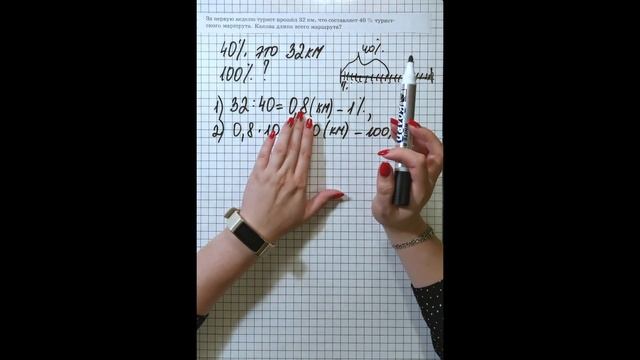 За первую неделю турист прошёл 32 км, что составляет 40 % турист-
ского маршрута. Какова длина всего маршрута?
40% это 32км
40%
100% ?
1) 32:40=0,8(км)-1%,
2) 0,8·10 0(км)-100,